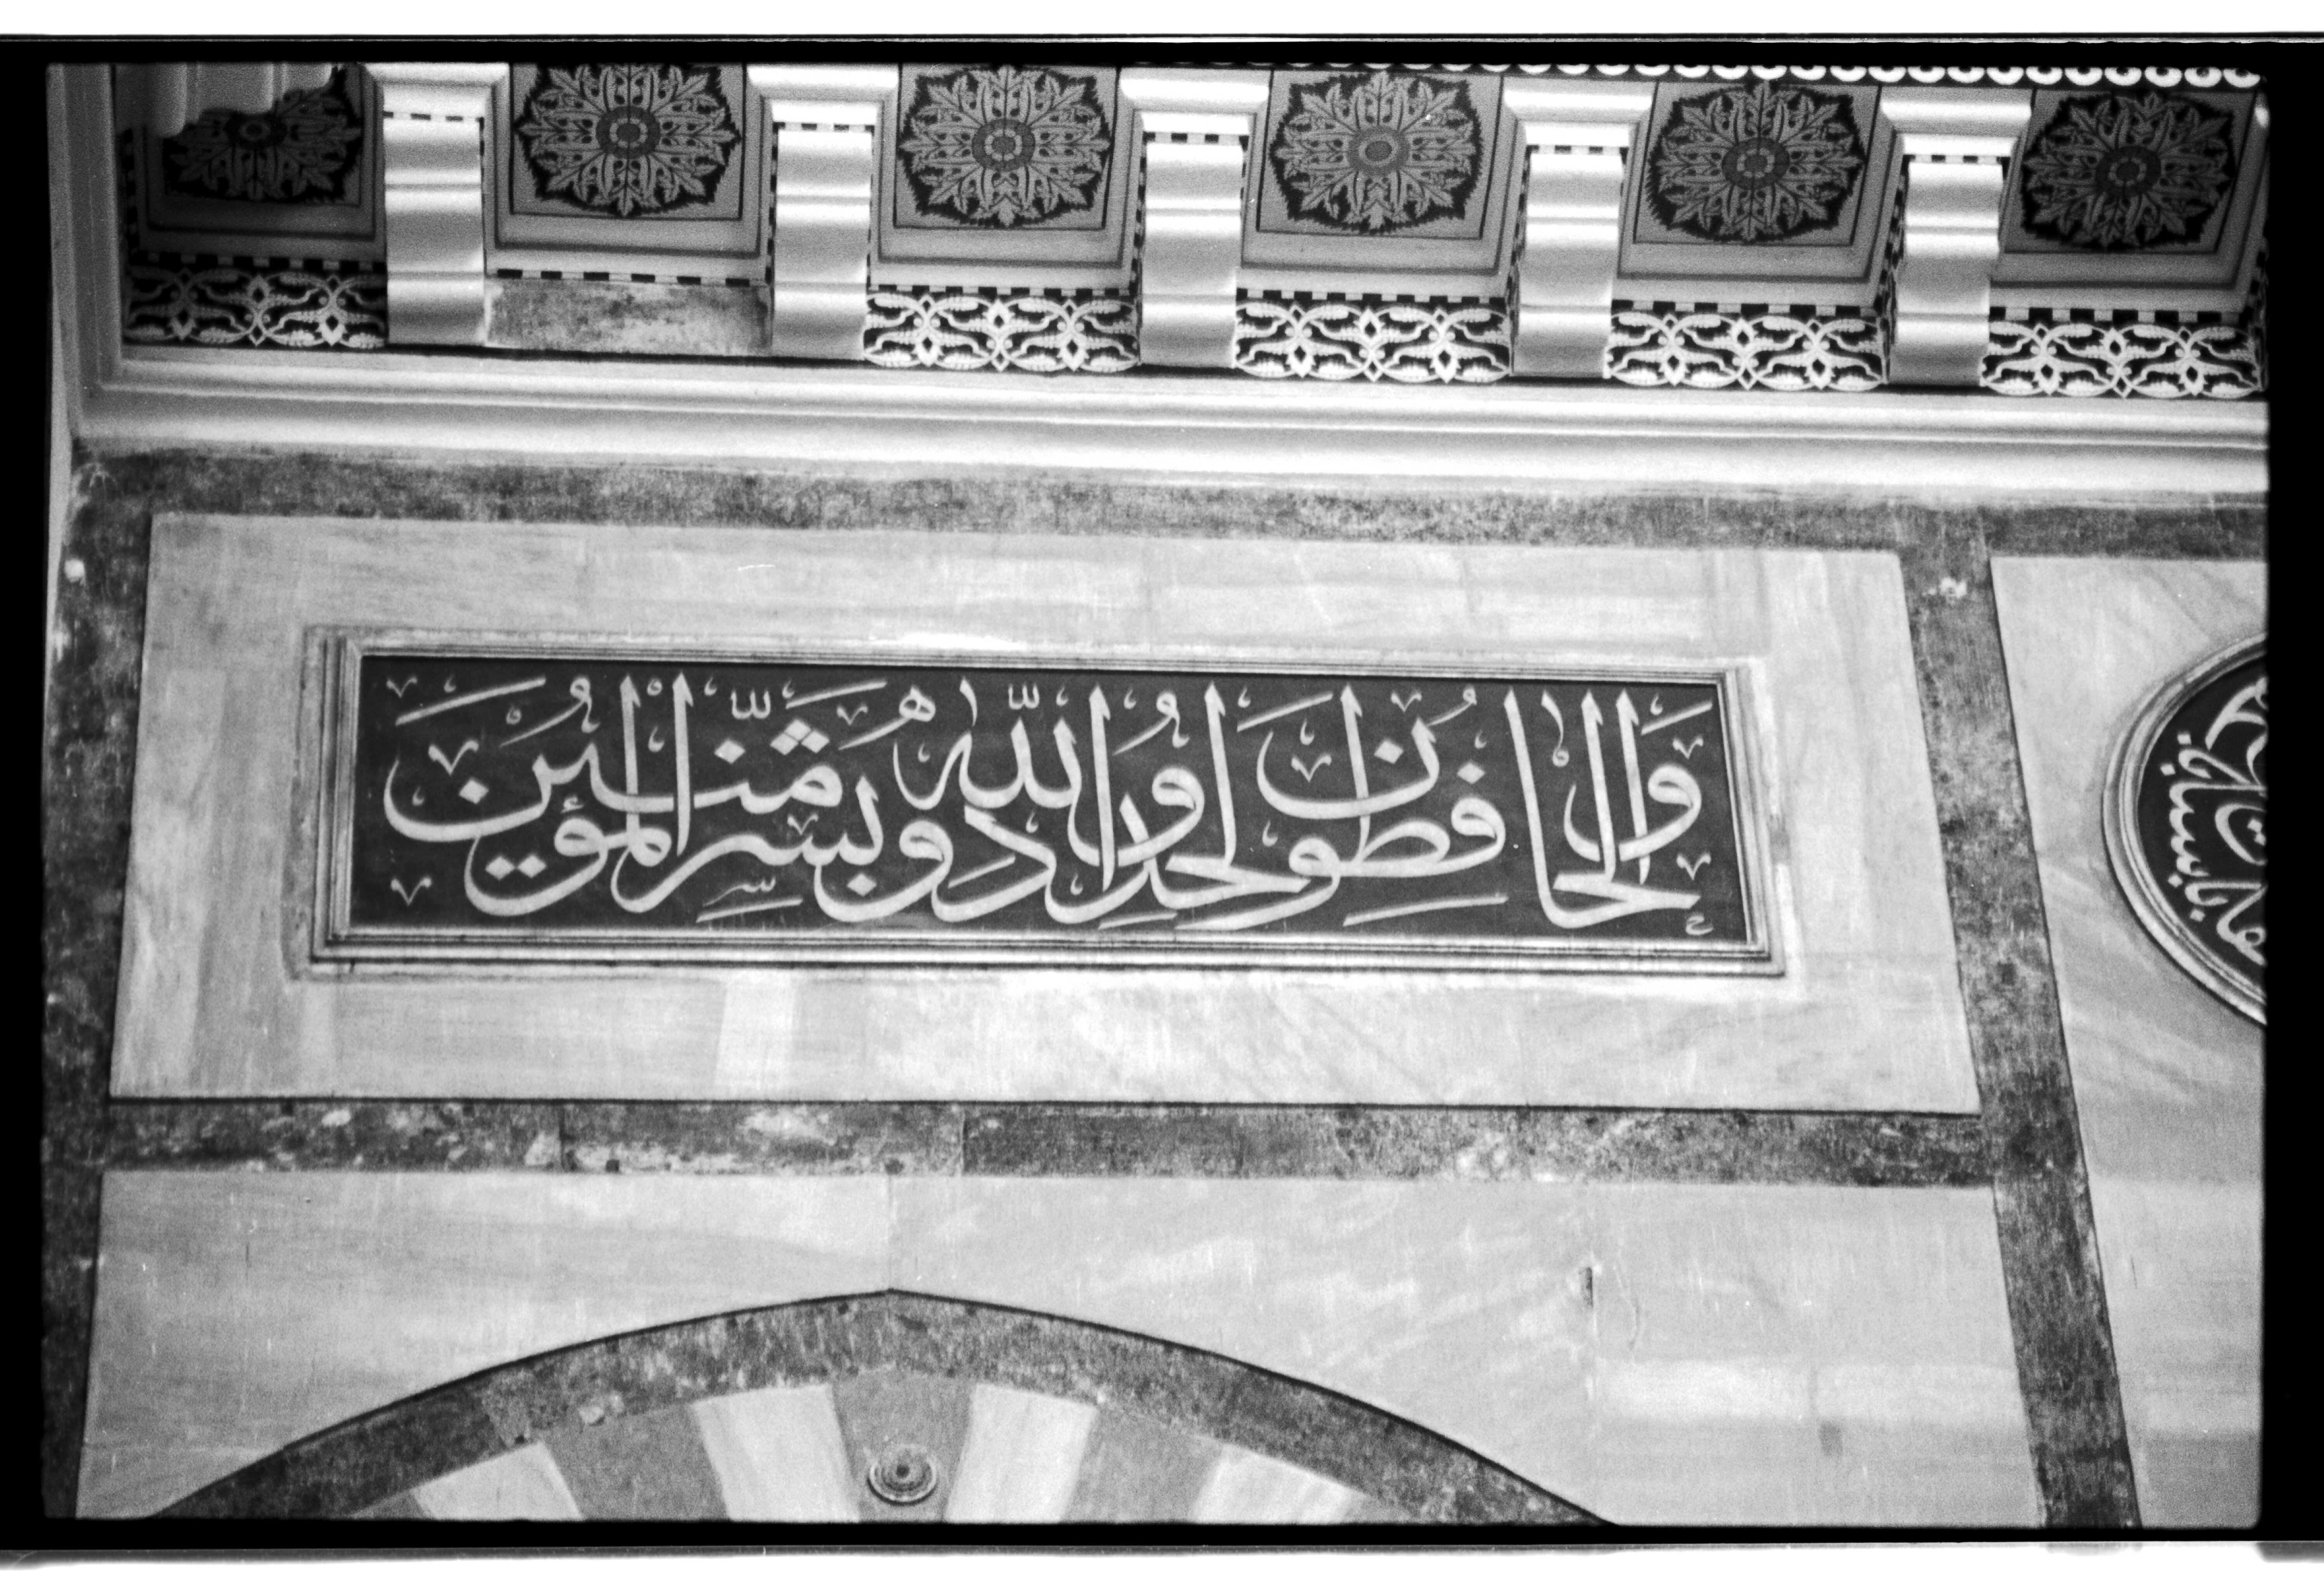 وَالْحَافِظُونَ لِحُدُودِ اللّٰهِ وَبَشِّرِ الْمُؤْمِنِينَ